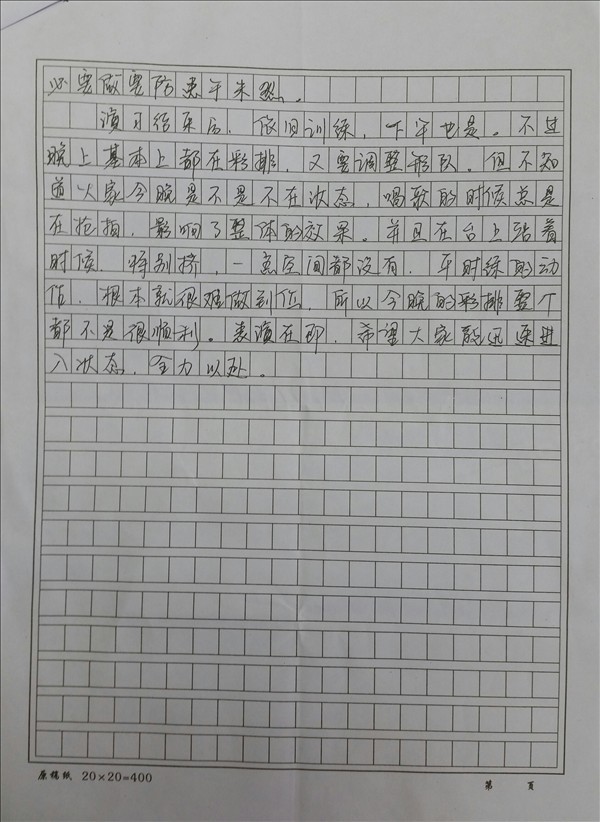 必要做要防患于未然。
演习结束后，依旧训练，下午也是。不过
晚上基本上都在彩排，又要调整形队。但不知
道大家今晚是不是不在状态，唱歌的时候总是
在抢拍，影响了整体的效果。并且在台上站着
时候，特别挤，一点空间都没有，平时练的动
作，根本就很难做到位，所以今晚的彩排整个
都不是很顺利。表演在即，希望大家能迅速进
入状态，全力以赴。
原稿纸 20×20=400
第 页